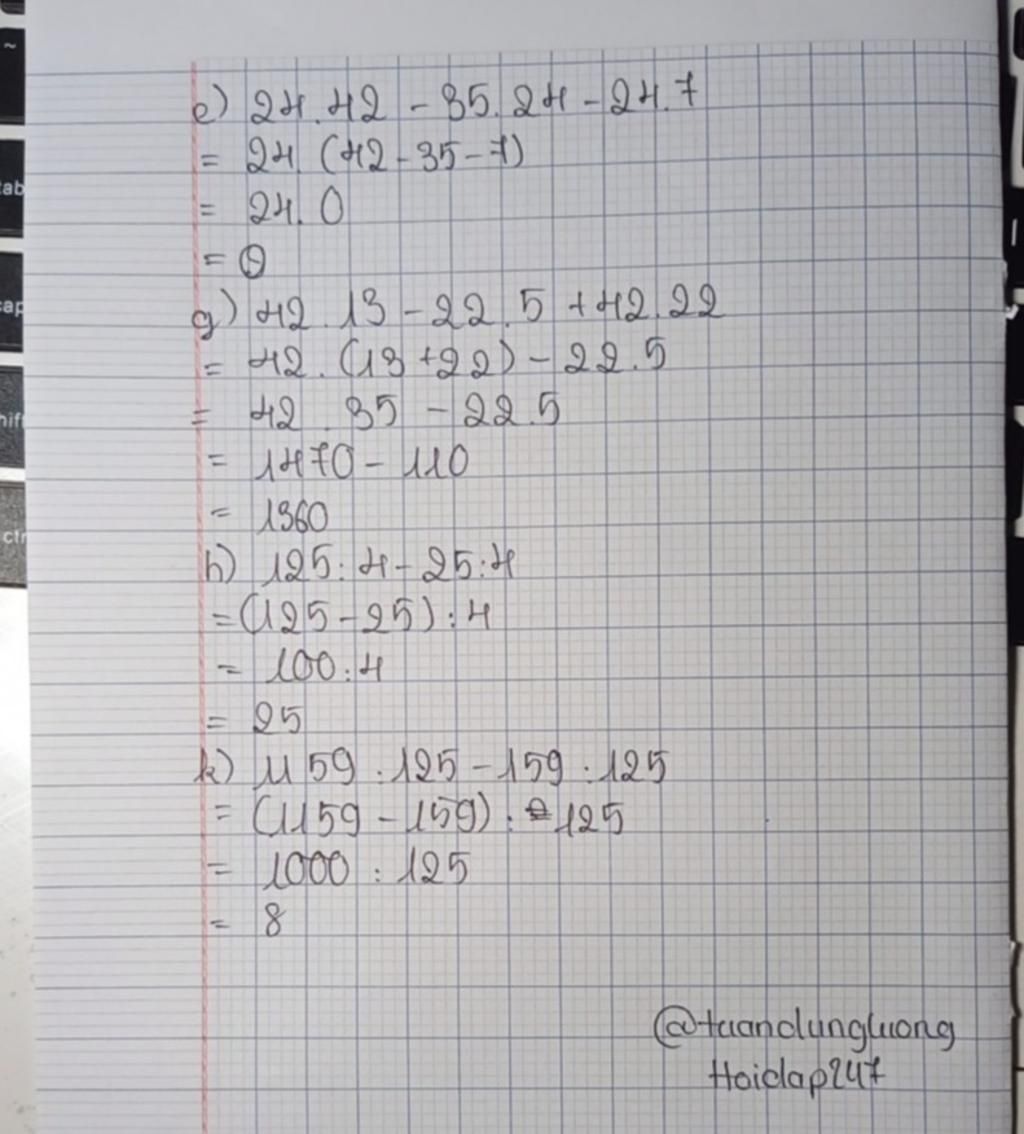 ~
tab
cap
hift
ctr
e) 24.42 - 35.24 - 24.7
= 24.(42-35-7)
= 24.0
= 0
g) 42.13 - 22.5 + 42.22
= 42.(13+22) - 22.5
= 42.35 - 22.5
= 1470 - 110
= 1360
h) 125:4 - 25:4
= (125-25):4
= 100:4
= 25
k) 1159:125 - 159:125
= (1159 - 159):125
= 1000:125
= 8
@tuandungluong
Hoidap247